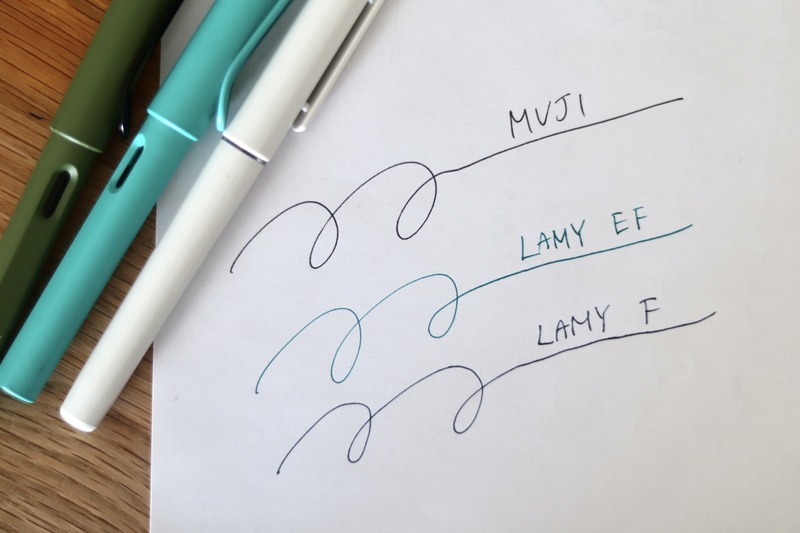 MUJI
LAMY EF
LAMY F